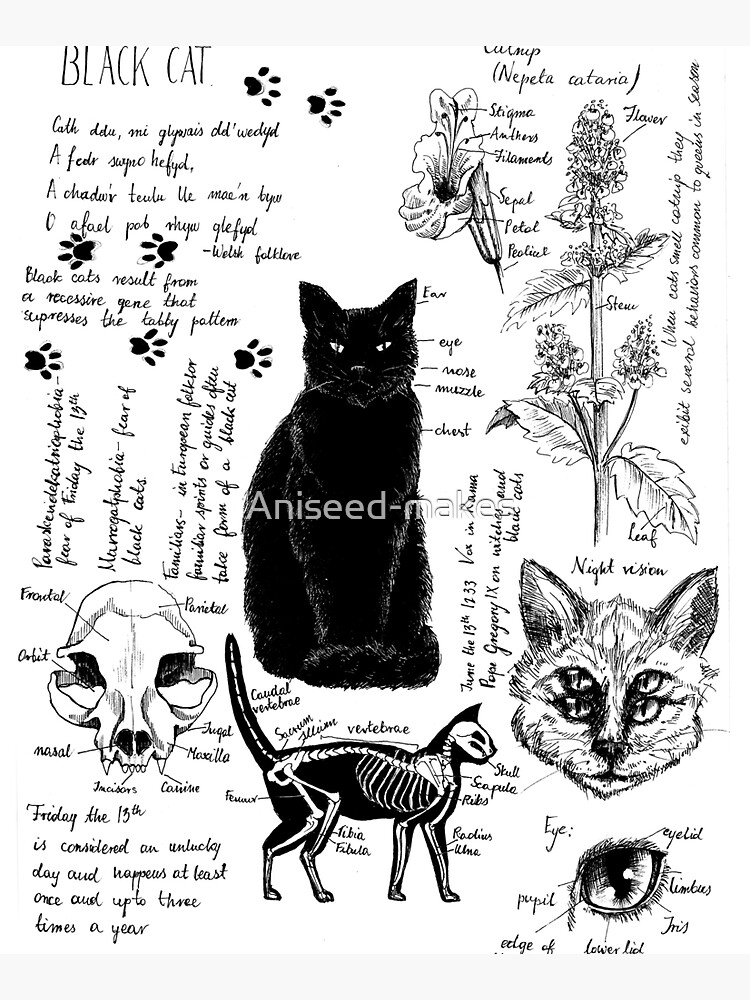 BLACK CAT
Cath ddu, mi glywais dd'wedyd
A fedr swyno hefyd,
A chadw'r teulu lle mae'n byw
O afael pob rhyw glefyd
-Welsh folklore
Black cats result from
a recessive gene that
supresses the tabby pattern
Catnip
(Nepeta cataria)
Stigma
Anthers
Filaments
Sepal
Petal
Pedicel
Flower
Stem
Leaf
When cats smell catnip they
exibit several behaviors common to queens in season
Ear
eye
nose
muzzle
chest
Paraskevidekatriaphobia-
fear of Friday the 13th
fear of
black cats.
Familiars- in European folklor
familiar spirits or guides often
take form of a black cat
June the 13th 1233 Vox in Rama
Pope Gregory IX on witches and
black cats
Aniseed-makes
Night vision
Frontal
Parietal
Orbit
nasal
Jugal
Maxilla
Incisors
Canine
Caudal
vertebrae
Sacrum
Illium
vertebrae
Skull
Scapula
Ribs
Femur
Tibia
Fibula
Radius
Ulna
Friday the 13th
is considered an unlucky
day and happens at least
once and upto three
times a year
Eye:
eyelid
limbus
Iris
pupil
edge of
lower lid